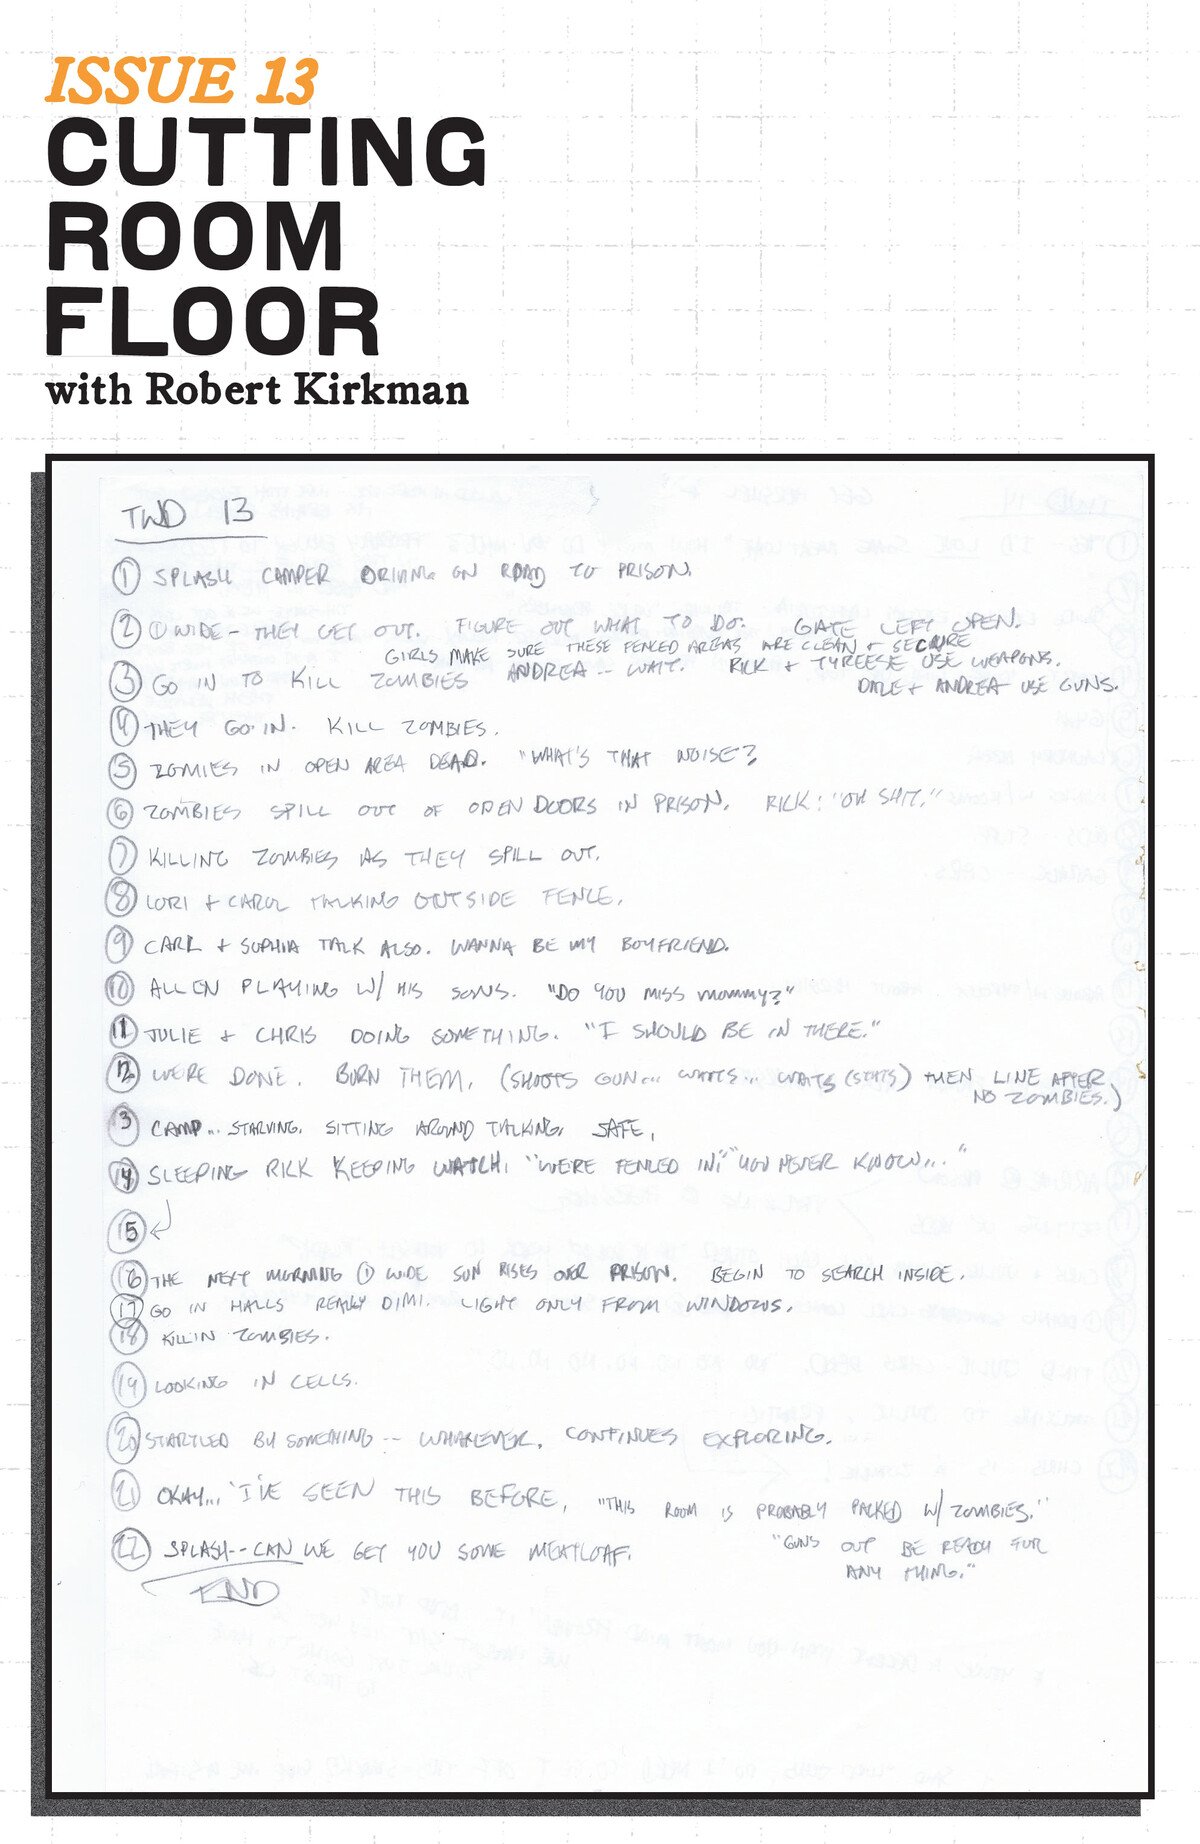 ISSUE 13
CUTTING
ROOM
FLOOR
with Robert Kirkman
TWD 13
① SPLASH CAMPER DRIVING ON ROAD TO PRISON.
② ① WIDE - THEY GET OUT. FIGURE OUT WHAT TO DO. GATE LEFT OPEN.
GIRLS MAKE SURE THESE FENCED AREAS ARE CLEAN + SECURE
③ GO IN TO KILL ZOMBIES ANDREA -- WAIT. RICK + TYREESE USE WEAPONS.
DALE + ANDREA USE GUNS.
④ THEY GO IN. KILL ZOMBIES.
⑤ ZOMIES IN OPEN AREA DEAD. "WHAT'S THAT NOISE"?
⑥ ZOMBIES SPILL OUT OF OPEN DOORS IN PRISON. RICK: "OH SHIT."
⑦ KILLING ZOMBIES AS THEY SPILL OUT.
⑧ LORI + CAROL TALKING OUTSIDE FENCE.
⑨ CARL + SOPHIA TALK ALSO. WANNA BE MY BOYFRIEND.
⑩ ALLEN PLAYING W/ HIS SONS. "DO YOU MISS MOMMY?"
⑪ JULIE + CHRIS DOING SOMETHING. "I SHOULD BE IN THERE."
⑫ WE'RE DONE. BURN THEM. (SHOOTS GUN... WAITS... WAITS (STATS) THEN LINE AFTER
NO ZOMBIES.)
③ CAMP... STARVING. SITTING AROUND TALKING. SAFE.
⑭ SLEEPING RICK KEEPING WATCH. "WE'RE FENCED IN." "YOU NEVER KNOW..."
⑮
⑯ THE NEXT MORNING ① WIDE SUN RISES OVER PRISON. BEGIN TO SEARCH INSIDE.
⑰ GO IN HALLS REALLY DIM. LIGHT ONLY FROM WINDOWS.
⑱ KILLIN ZOMBIES.
⑲ LOOKING IN CELLS.
⑳ STARTLED BY SOMETHING -- WHATEVER. CONTINUES EXPLORING.
㉑ OKAY... I'VE SEEN THIS BEFORE. "THIS ROOM IS PROBABLY PACKED W/ ZOMBIES."
"GUNS OUT BE READY FOR
ANY THING."
㉒ SPLASH -- CAN WE GET YOU SOME MEATLOAF.
END